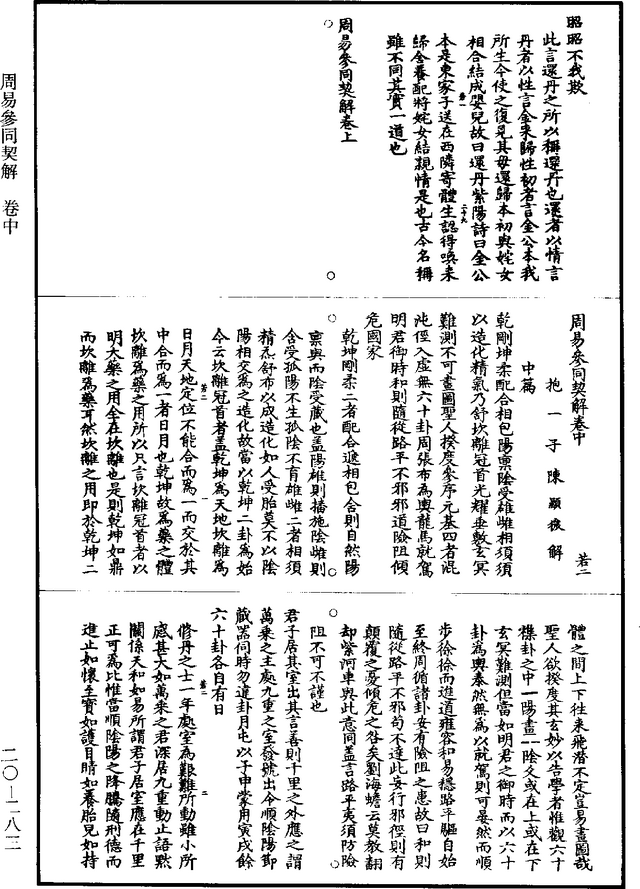 昭昭不我欺
此言還丹之所以稱還丹也還者以情言
丹者以性言金來歸性初者言金公本我
所生今使之復見其母還歸本初與姹女
相合結成嬰兒故曰還丹紫陽詩曰金公
本是東家子送在西隣寄體生認得喚來
歸舍養配將姹女結親情是也古今名稱
雖不同其實一道也
周易參同契解卷上
周易參同契解卷中
若二
抱一子陳顯微解
中篇
乾剛坤柔配合相包陽稟陰受雄雌相須須
以造化精氣乃舒坎離冠首光耀垂敷玄冥
難測不可畫圖聖人揆度參序元基四者混
沌徑入虛無六十卦周張布為輿龍馬就駕
明君御時和則隨從路平不邪邪道險阻傾
危國家
乾坤剛柔二者配合遞相包合則自然陽
稟與而陰受藏也蓋陽雄則播施陰雌則
含受孤陽不生孤陰不育雄雌二者相須
精炁舒布以成造化如人受胎莫不以陰
陽相交為之造化故當以乾坤二卦為始
今云坎離冠首者蓋乾坤為天地坎離為
日月天地定位不能合而為一而交於其
中合而為一者日月也乾坤故為藥之體
坎離為藥之用所以只言坎離冠首者以
明大藥之用全在坎離也是則乾坤如鼎
而坎離為藥耳然坎離之用即於乾坤二
體之間上下往來飛潛不定豈易畫圖哉
聖人欲揆度其玄妙以告學者惟觀六十
雜卦之中一陽畫一陰爻或在上或在下
玄冥難測但當如明君之御時而以六十
卦為輿泰然無為以就駕則可晏然而順
步徐徐而進道雍容和易穩路平驅自始
至終周循諸卦安有險阻之患故曰和則
隨從路平不邪苟不達此妄行邪徑則有
顛覆之憂傾危之咎矣劉海蟾云莫教翻
却紫河車與此意同蓋言路平夷須防險
阻不可不謹也
君子居其室出其言善則千里之外應之謂
萬乘之主處九重之室發號出令順陰陽節
藏器同時勿違卦月屯以子申蒙用寅戌餘
六十卦各自有日
修丹之士一年處室為艱難所動雖小所
感甚大如萬乘之君深居九重動止語默
關係天和如易所謂君子居室應在千里
正可為比惟當順陰陽之降騰隨刑德而
進止如懷至寶如護目睛如養胎兒如持
周易參同契解　卷中
二〇—二八三